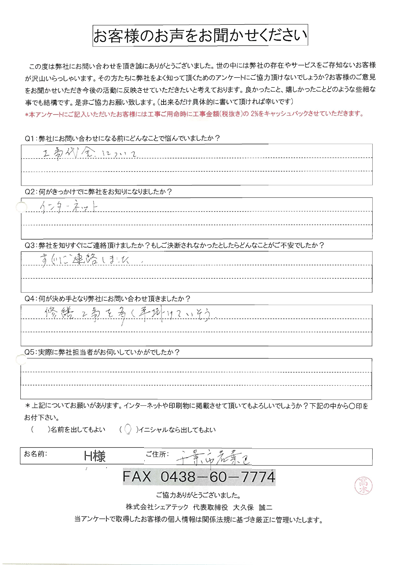 お客様のお声をお聞かせください
この度は弊社にお問い合わせを頂き誠にありがとうございました。世の中には弊社の存在やサービスをご存知ないお客様
が沢山いらっしゃいます。その方たちに弊社をよく知って頂くためのアンケートにご協力頂けないでしょうか?お客様のご意見
をお聞かせいただき今後の活動に反映させていただきたいと考えております。良かったこと、嬉しかったことどのような些細な
事でも結構です。是非ご協力お願い致します。(出来るだけ具体的に書いて頂ければ幸いです)
*本アンケートにご記入いただいたお客様には工事ご用命時に工事金額(税抜き)の2%をキャッシュバックさせていただきます。
Q1:弊社にお問い合わせになる前にどんなことで悩んでいましたか?
工事代金について
Q2:何がきっかけでに弊社をお知りになりましたか?
インターネット
Q3:弊社を知りすぐにご連絡頂けましたか?もしご決断されなかったとしたらどんなことがご不安でしたか?
すぐに連絡しました。
Q4:何が決め手となり弊社にお問い合わせ頂きましたか?
修繕工事を多く手掛けていそう
Q5:実際に弊社担当者がお伺いしていかがでしたか?
*上記についてお願いがあります。インターネットや印刷物に掲載させて頂いてもよろしいでしょうか?下記の中から〇印を
お付下さい。
( )名前を出してもよい (〇)イニシャルなら出してもよい
お名前: H様 ご住所: 千葉市若葉区
FAX 0438-60-7774
ご協力ありがとうございました。
株式会社シェアテック 代表取締役 大久保 誠二
当アンケートで取得したお客様の個人情報は関係法規に基づき厳正に管理いたします。